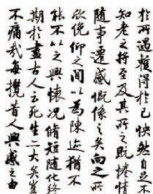 於所遇暫得於己快然自足不
知老之將至及其所之既惓情
隨事遷感慨係之矣向之所
欣俛仰之間以為陳迹猶不
能不以之興懷況脩短隨化終
期於盡古人云死生亦大矣豈
不痛哉每攬昔人興感之由